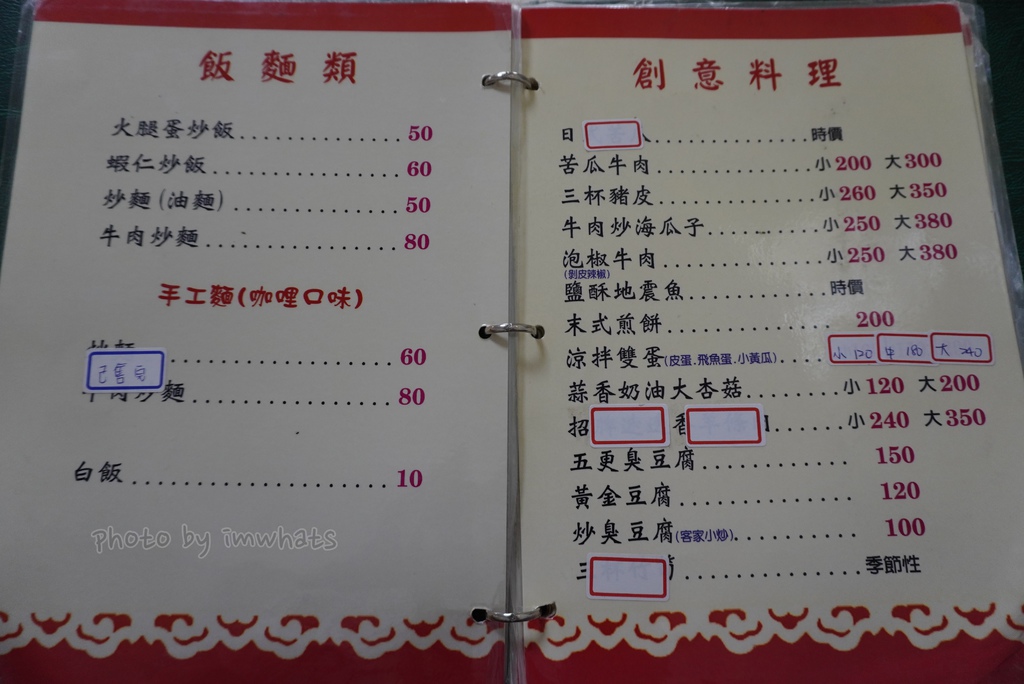 飯麵類
火腿蛋炒飯..................50
蝦仁炒飯..................60
炒麵(油麵)..................50
牛肉炒麵..................80
手工麵(咖哩口味)
炒麵..................60
已售完
牛肉炒麵..................80
白飯..................10
photo by imwhats
創意料理
日..................時價
苦瓜牛肉..................小200 大300
三杯豬皮..................小260 大350
牛肉炒海瓜子..................小250 大380
泡椒牛肉..................小250 大380
(剝皮辣椒)
鹽酥地震魚..................時價
末式煎餅..................200
涼拌雙蛋(皮蛋.飛魚蛋.小黃瓜).....小120 中180 大240
蒜香奶油大杏菇..................小120 大200
招 香..................小240 大350
五更臭豆腐..................150
黃金豆腐..................120
炒臭豆腐(客家小炒)..................100
三..................季節性